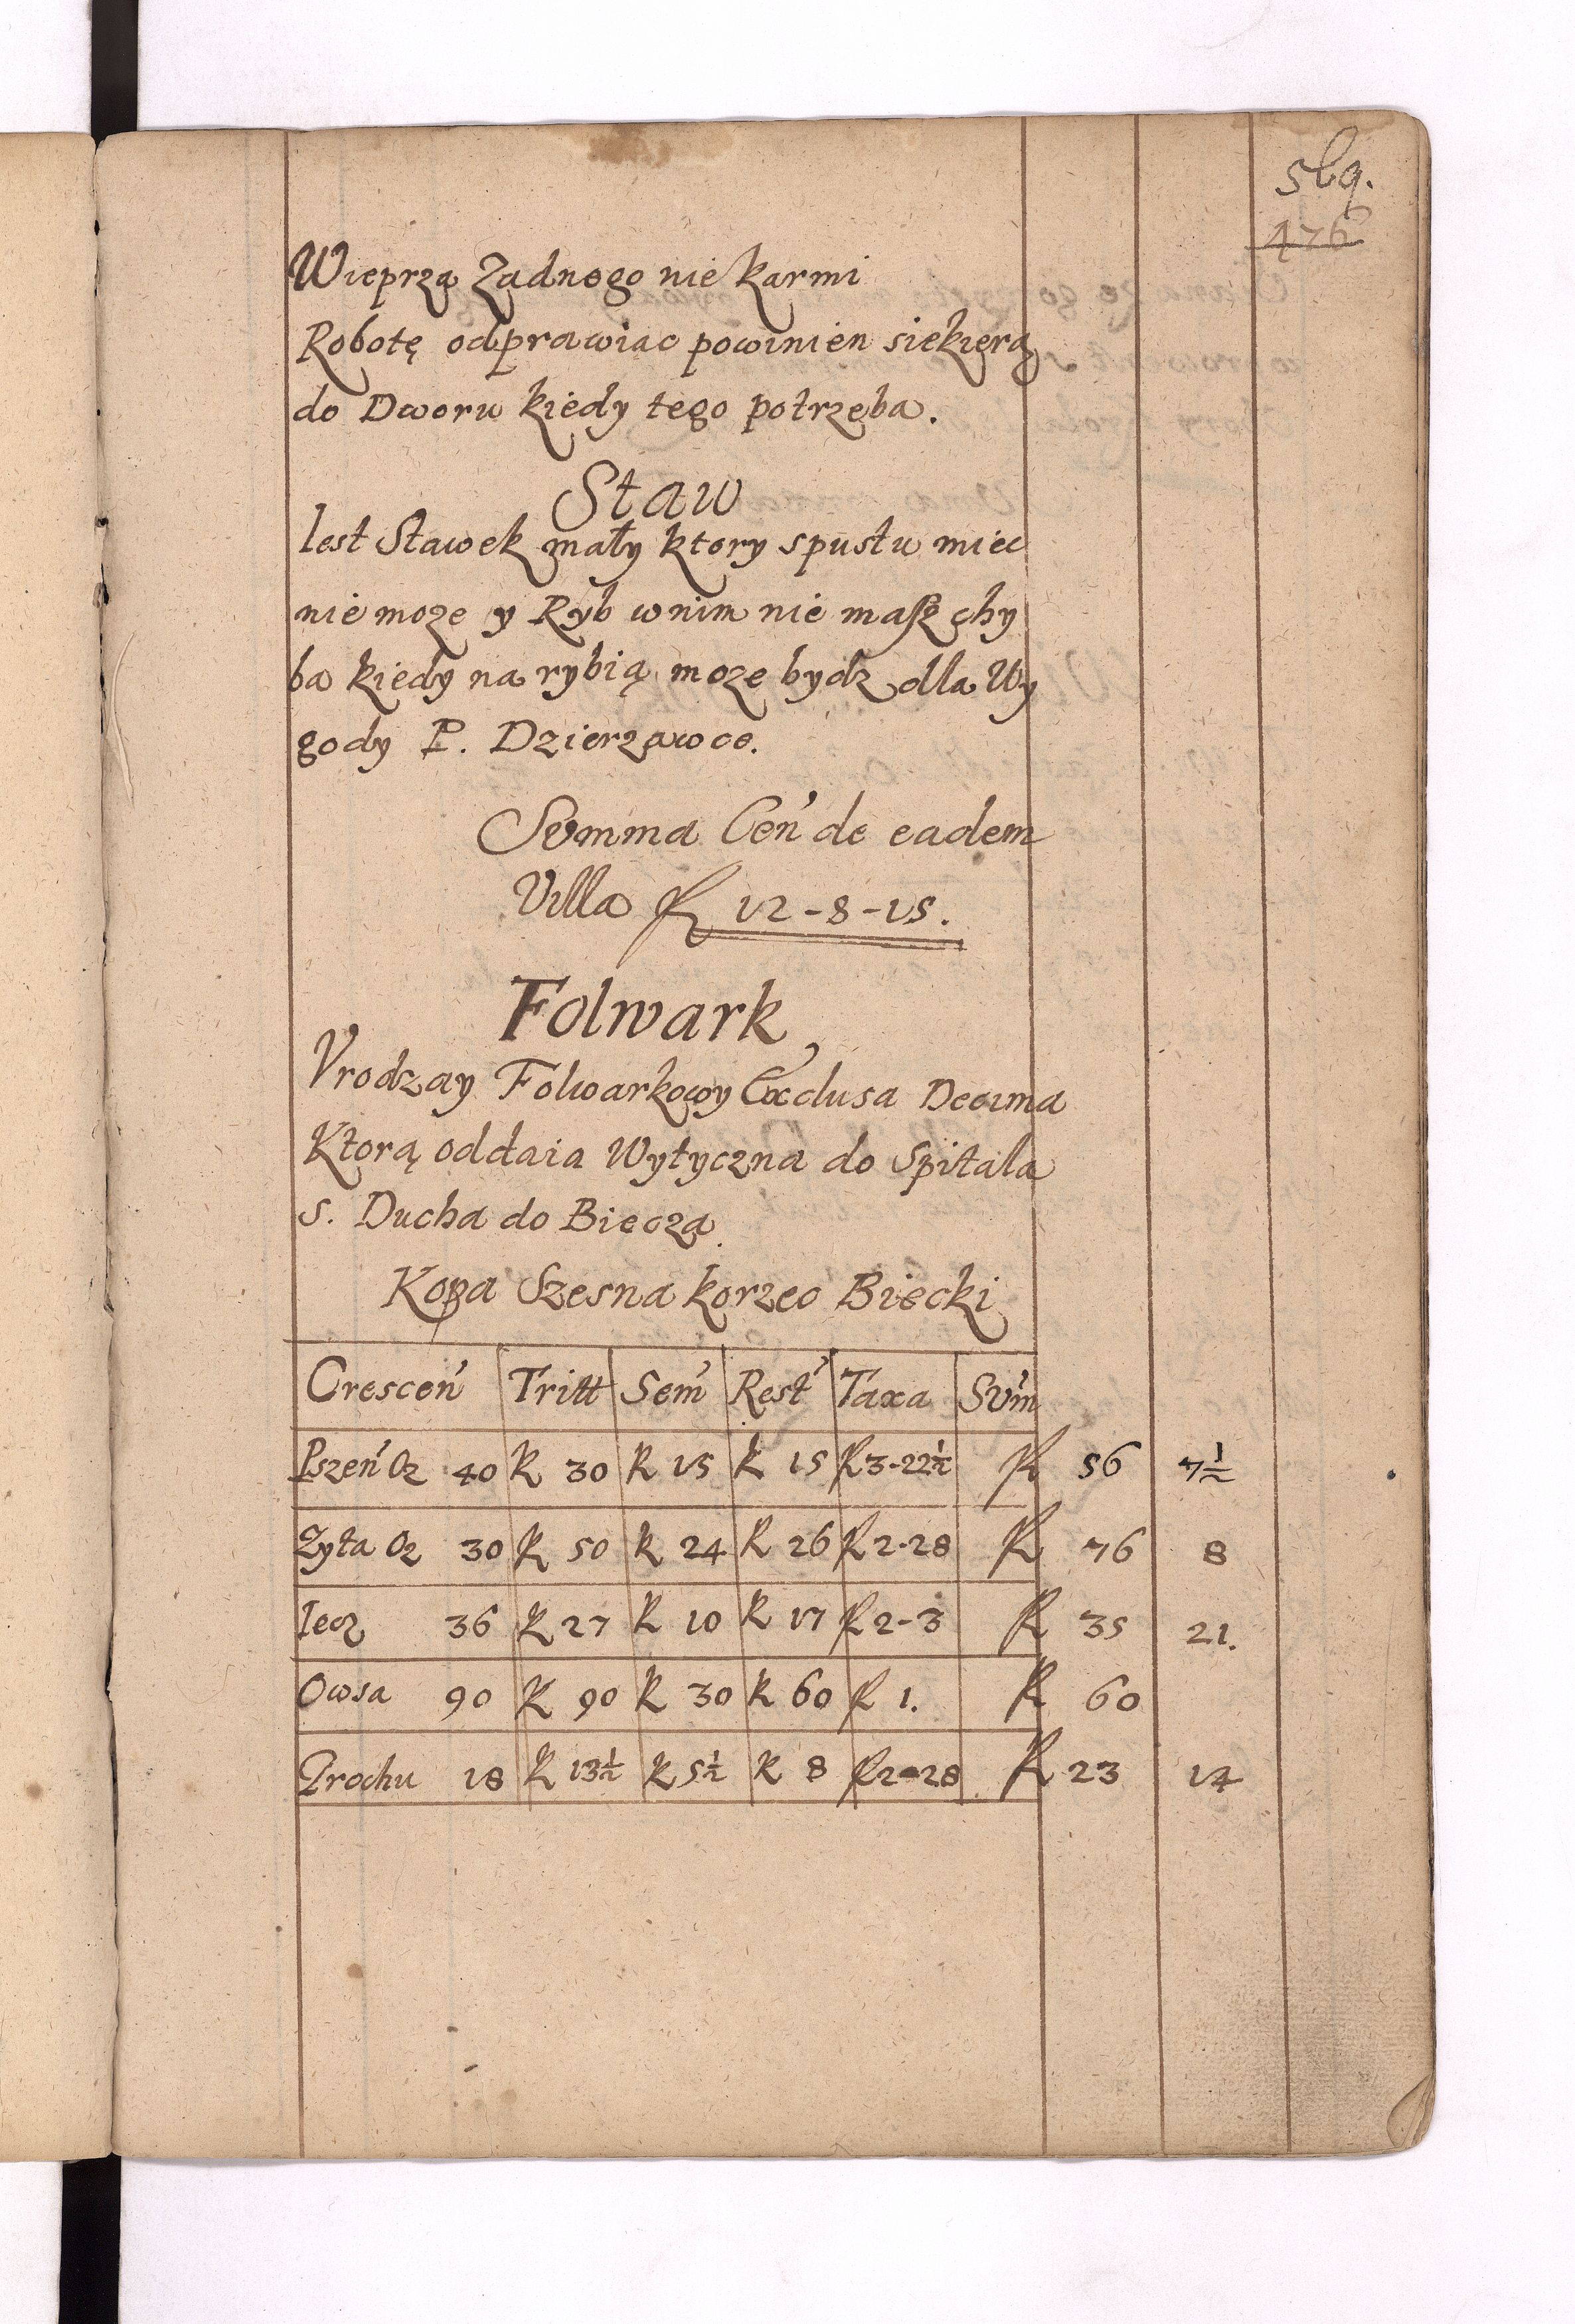 569.
476
Wieprza Żadnego nie karmi
Robotę odprawiac powinien siekięrą
do Dworu kiedy tego potrzeba.
Staw
Iest Stawek mały ktory spustu miec
nie moze y Ryb w nim nie masz chy
ba kiedy na rybią moze bydz dla Wy
gody P. Dzierzawce.
Summa Cen̄ de eadem
Villa fl 12-8-15.
Folwark
Vrodzay Folwarkowy Exclusa Decima
Ktorą oddaia Wytyczna do Spitala
S. Ducha do Biecza
Kopa Szesna korzec Biecki
Crescen̄ Tritt Sem̄ Rest̄ Taxa Sūm
Pszen̄ Oz 40 K 30 K 15 K 15 fl 3-22½ fl 56 7½
Zyta Oz 30 K 50 K 24 K 26 fl 2-28 fl 76 8
Iecz 36 K 27 K 10 K 17 fl 2-3 fl 35 21.
Owsa 90 K 90 K 30 K 60 fl 1. fl 60
Grochu 18 K 13½ K 5½ K 8 fl 2-28 fl 23 14